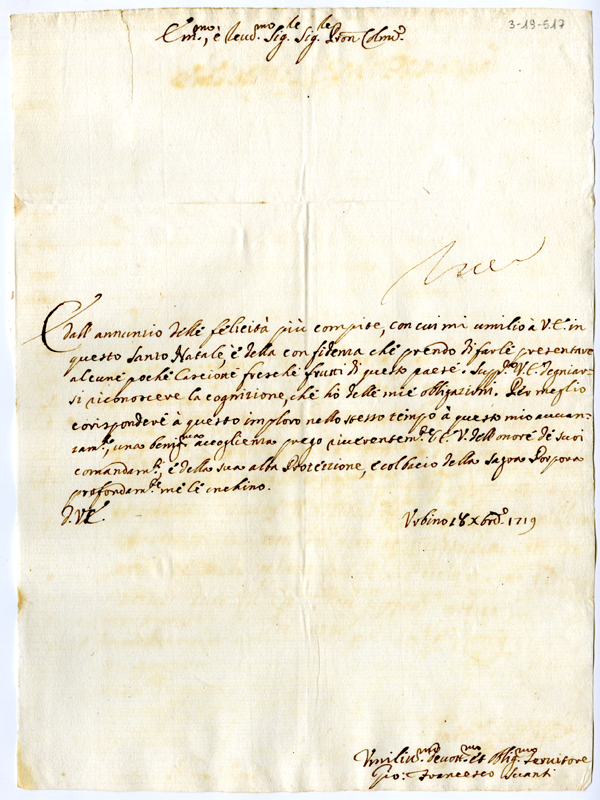 3-19-517
Em.mo, e Reud.mo Sig. Sig.le Pron Colmo.
Dall annunzio delle felicità più compite, con cui mi umilio à V.E. in
questo Santo Natale, è della confidenza che prendo di farle presentare
alcune poche Casciole fresche frutti di questo paese. Supp.co V.E. degniar-
si riconoscere la cognizione, che hò delle mie obligazioni. Per meglio
corispondere à questo imploro nello stesso tempo à questo mio
una benig.ma acoglienza prego riuerentem.te l'E.V. dell onore de suoi
comandam.ti, è della sua alta Protezzione, e col bacio della Sagra Porpora
profondam.te me le inchino.
D.V.E.
Vrbino 18 Xbre. 1719
Vmiliss.mo Deuot.mo et Oblig.mo Seruitore
Gio: Francesco